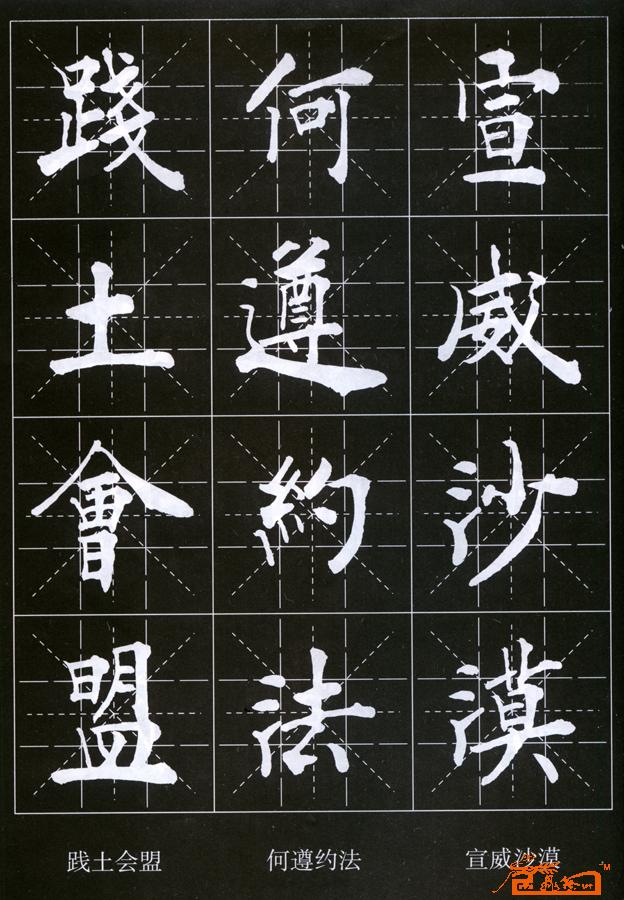 宣威沙漠
何遵約法
践土會盟
践土会盟 何遵约法 宣威沙漠